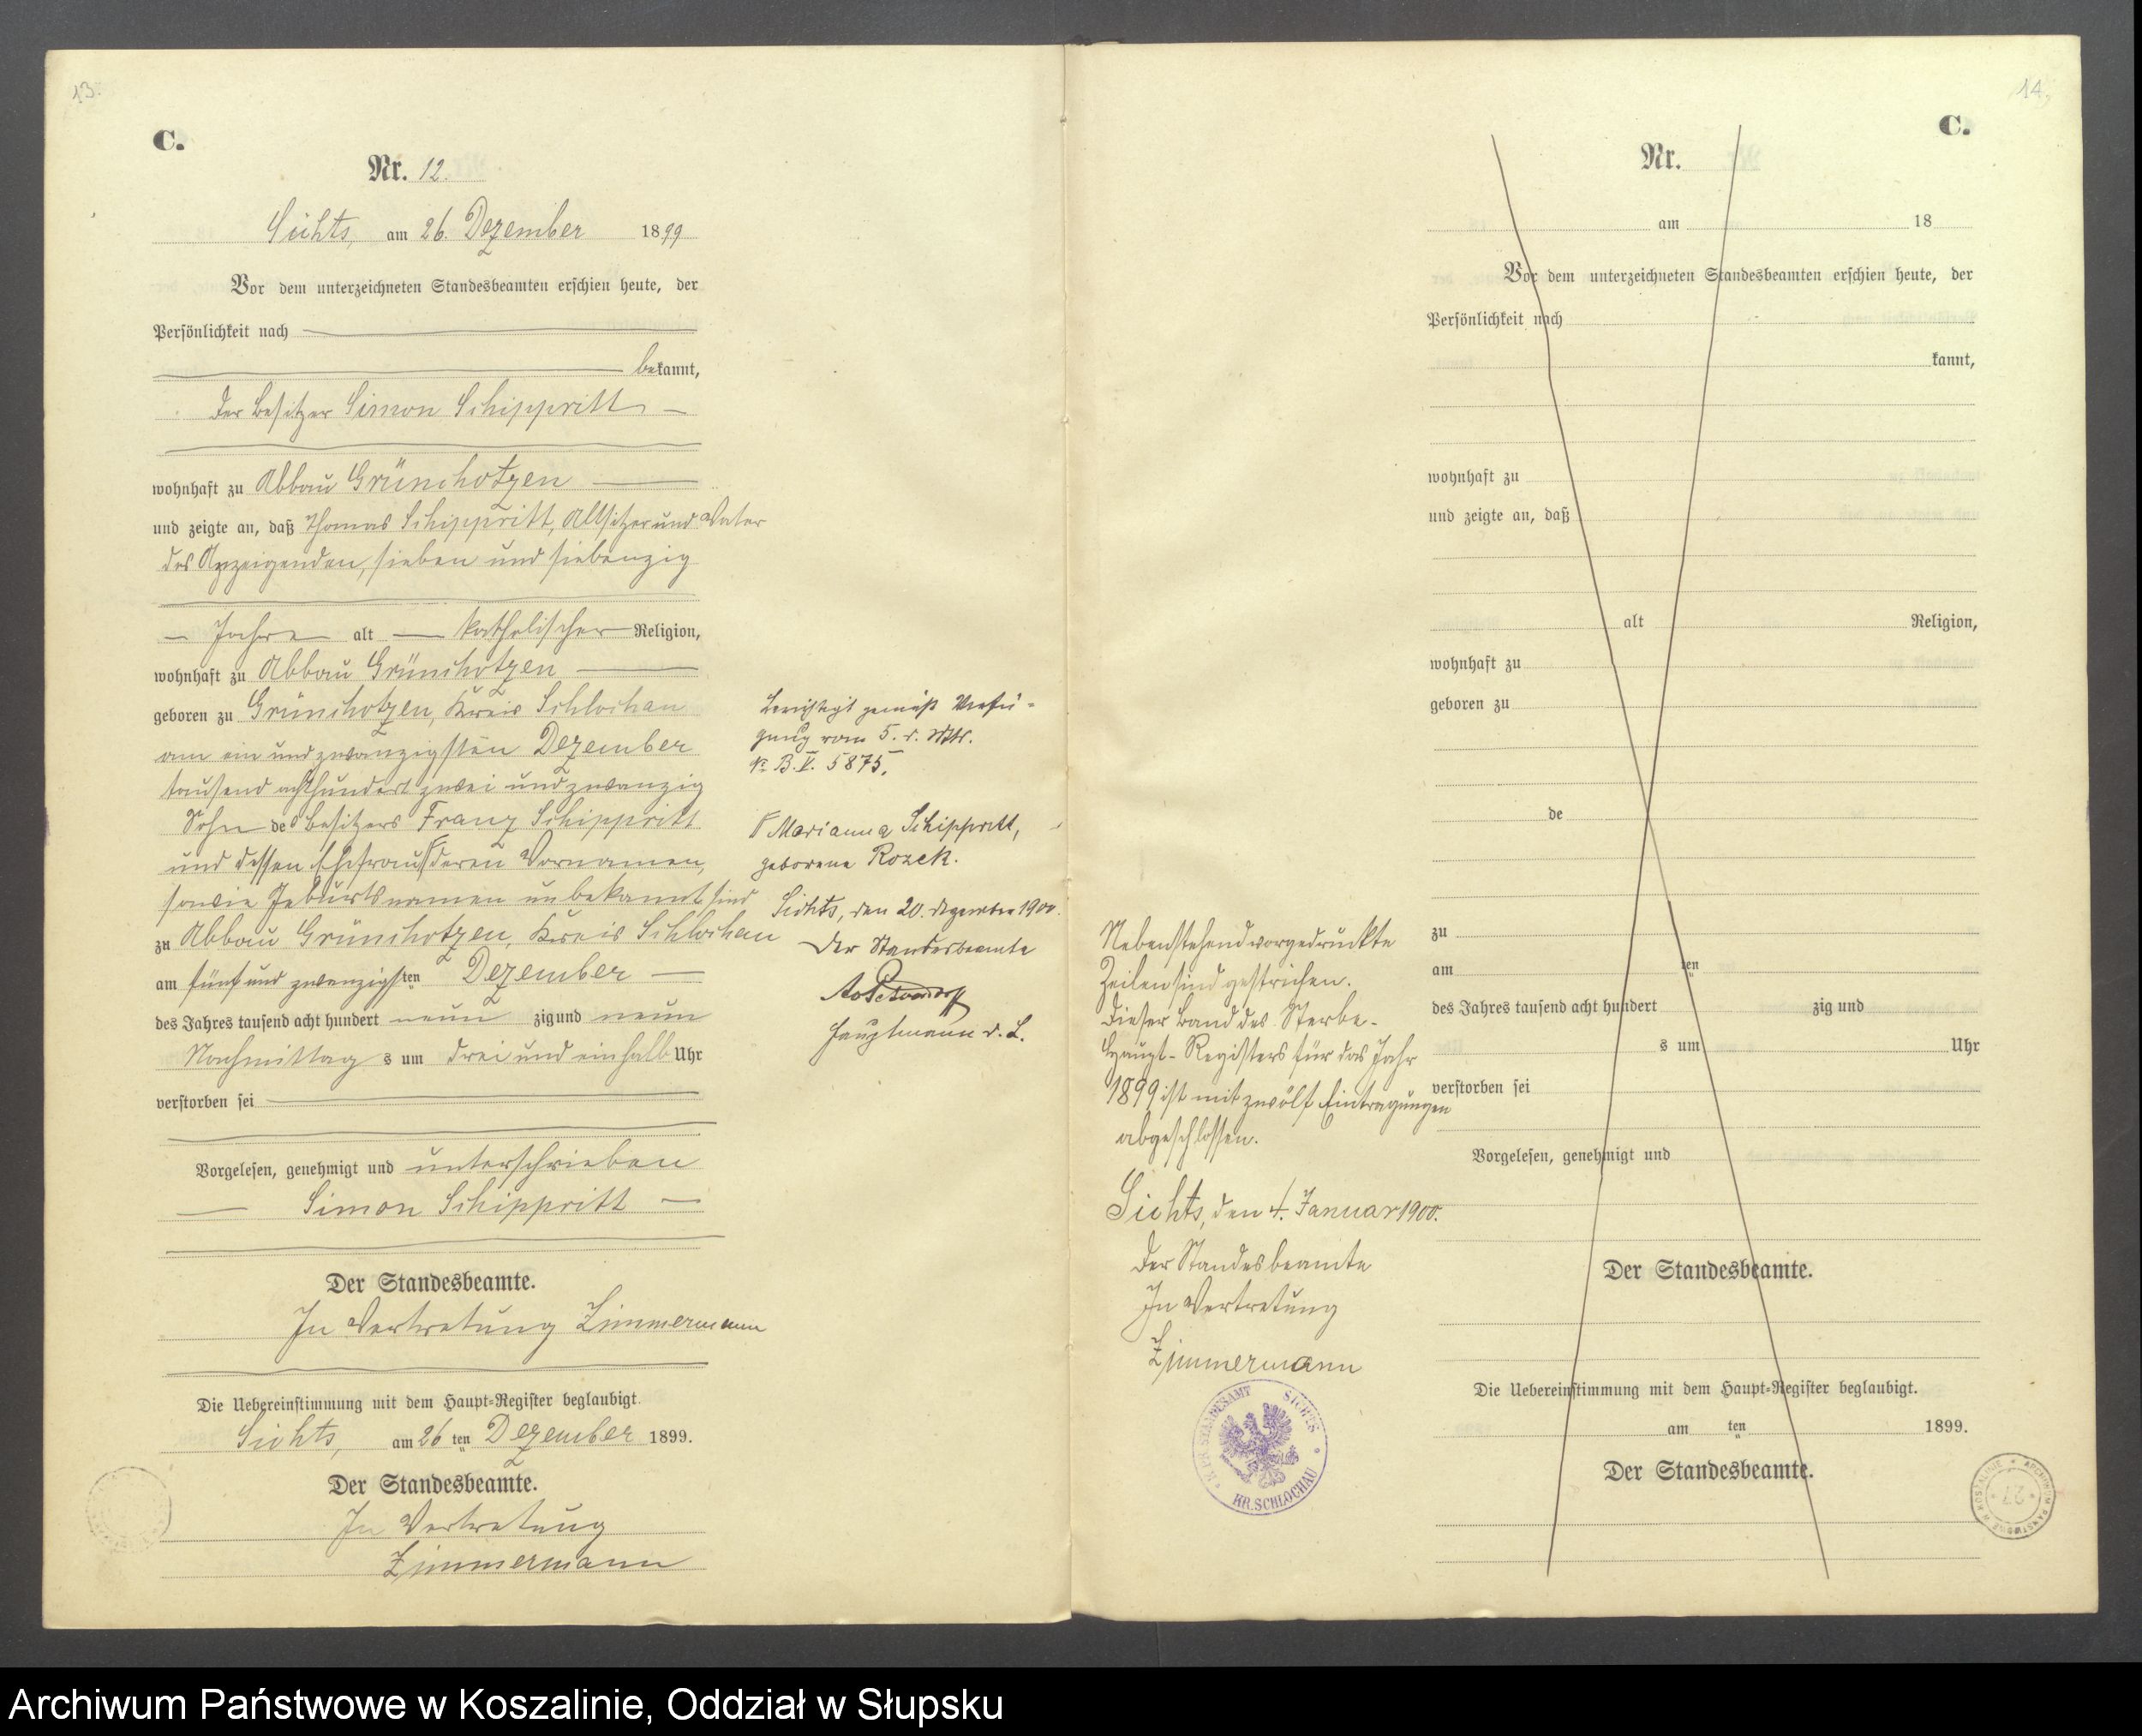 13.
C.
Nr. 12.
Sichts, am 26. Dezember 1899
Vor dem unterzeichneten Standesbeamten erschien heute, der
Persönlichkeit nach
bekannt,
der Besitzer Simon Schippritt
wohnhaft zu Abbau Grünchotzen
und zeigte an, daß Thomas Schippritt, Altsitzer und Vater
des Anzeigenden, sieben und siebenzig
Jahre alt katholischer Religion,
wohnhaft zu Abbau Grünchotzen
geboren zu Grünchotzen, Kreis Schlochau
am ein und zwanzigsten Dezember
tausend achthundert zwei und zwanzig
Sohn des Besitzers Franz Schippritt
und dessen Ehefrau, deren Vornamen,
sowie Geburtsnamen unbekannt sind
zu Abbau Grünchotzen, Kreis Schlochau
am fünf und zwanzigsten Dezember
des Jahres tausend acht hundert neunzig und neun
Nachmittags um drei und einhalb Uhr
verstorben sei
Vorgelesen, genehmigt und unterschrieben
Simon Schippritt
Der Standesbeamte.
In Vertretung Zimmermann
Die Uebereinstimmung mit dem Haupt-Register beglaubigt.
Sichts, am 26 ten Dezember 1899.
Der Standesbeamte.
In Vertretung
Zimmermann
Berichtigt gemäß Verfü-
gung vom 5. d. Mts.
No B. V. 5875.
Marianna Schippritt,
geborene Rozek.
Sichts, den 20. Dezember 1900.
Der Standesbeamte
Hauptmann d. L.
14,
C.
Nr.
am 18
Vor dem unterzeichneten Standesbeamten erschien heute, der
Persönlichkeit nach
kannt,
wohnhaft zu
und zeigte an, daß
alt Religion,
wohnhaft zu
geboren zu
de
zu
am ten
des Jahres tausend acht hundert zig und
s um Uhr
verstorben sei
Vorgelesen, genehmigt und
Der Standesbeamte.
Die Uebereinstimmung mit dem Haupt-Register beglaubigt.
am ten 1899.
Der Standesbeamte.
Nebenstehend vorgedruckte
Zeilen sind gestrichen.
Dieser Band des Sterbe-
Haupt-Registers für das Jahr
1899 ist mit zwölf Eintragungen
abgeschlossen.
Sichts, den 4. Januar 1900.
Der Standesbeamte
In Vertretung
Zimmermann
STANDESAMT SICHTS
KR. SCHLOCHAU
ARCHIWUM PAŃSTWOWE W KOSZALINIE
27
Archiwum Państwowe w Koszalinie, Oddział w Słupsku